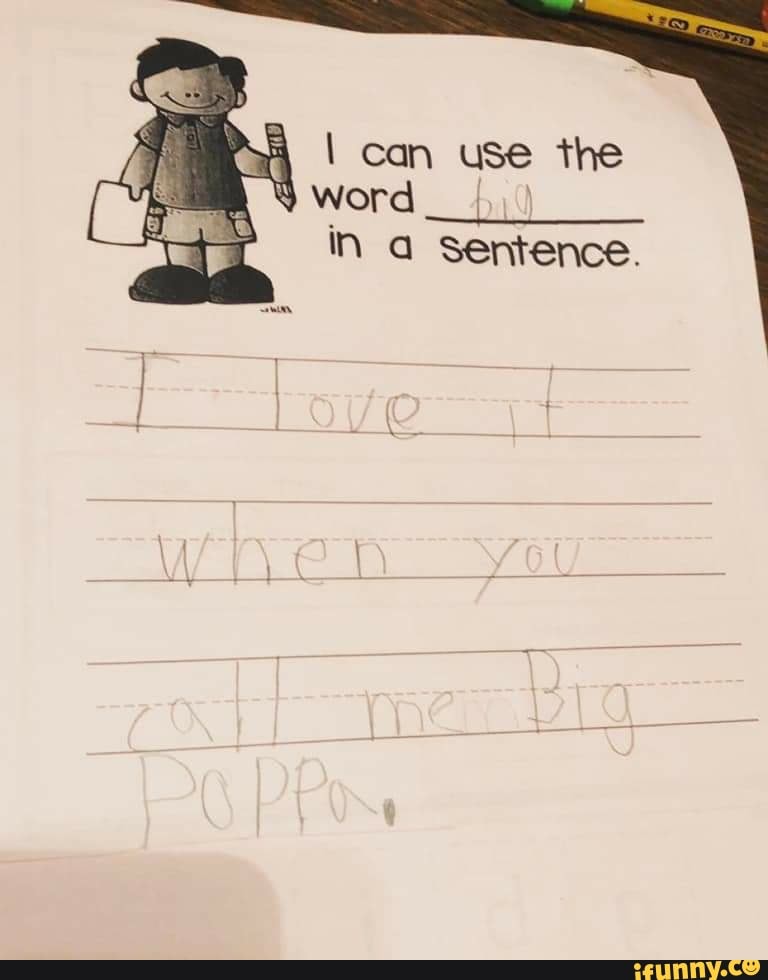 I can use the
word big
in a sentence.
I love it
when you
call me Big
Poppa.
ifunny.co